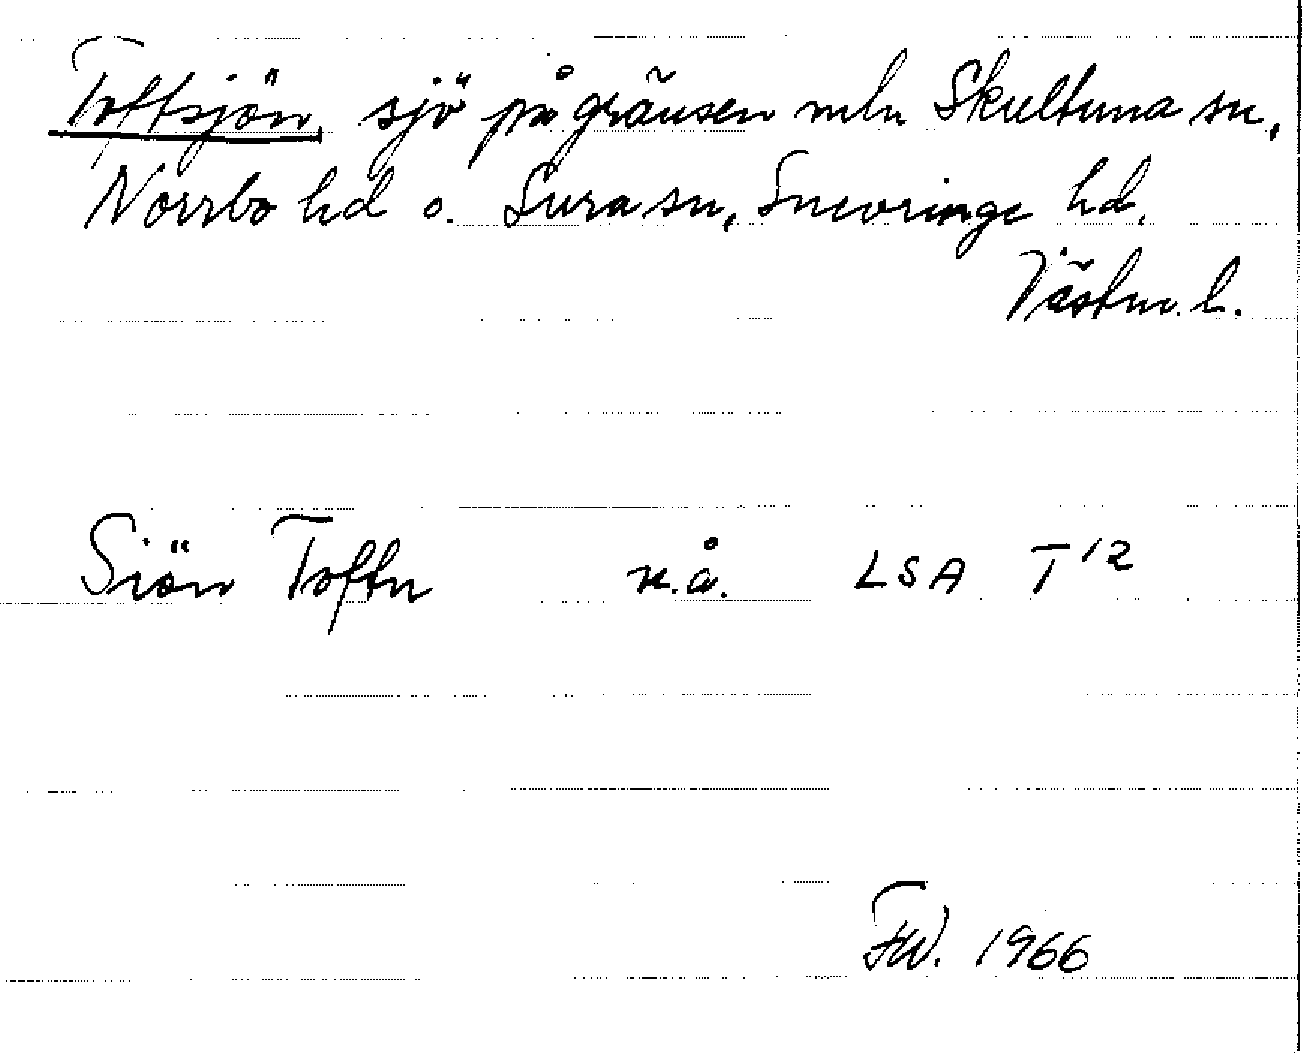 Toftsjön sjö på gränsen mln Skultuna sn,
Norrbo hd o. Sura sn, Snevringe hd.
Västm. l.
Siön Toftn u.å. LSA T 12
FW. 1966